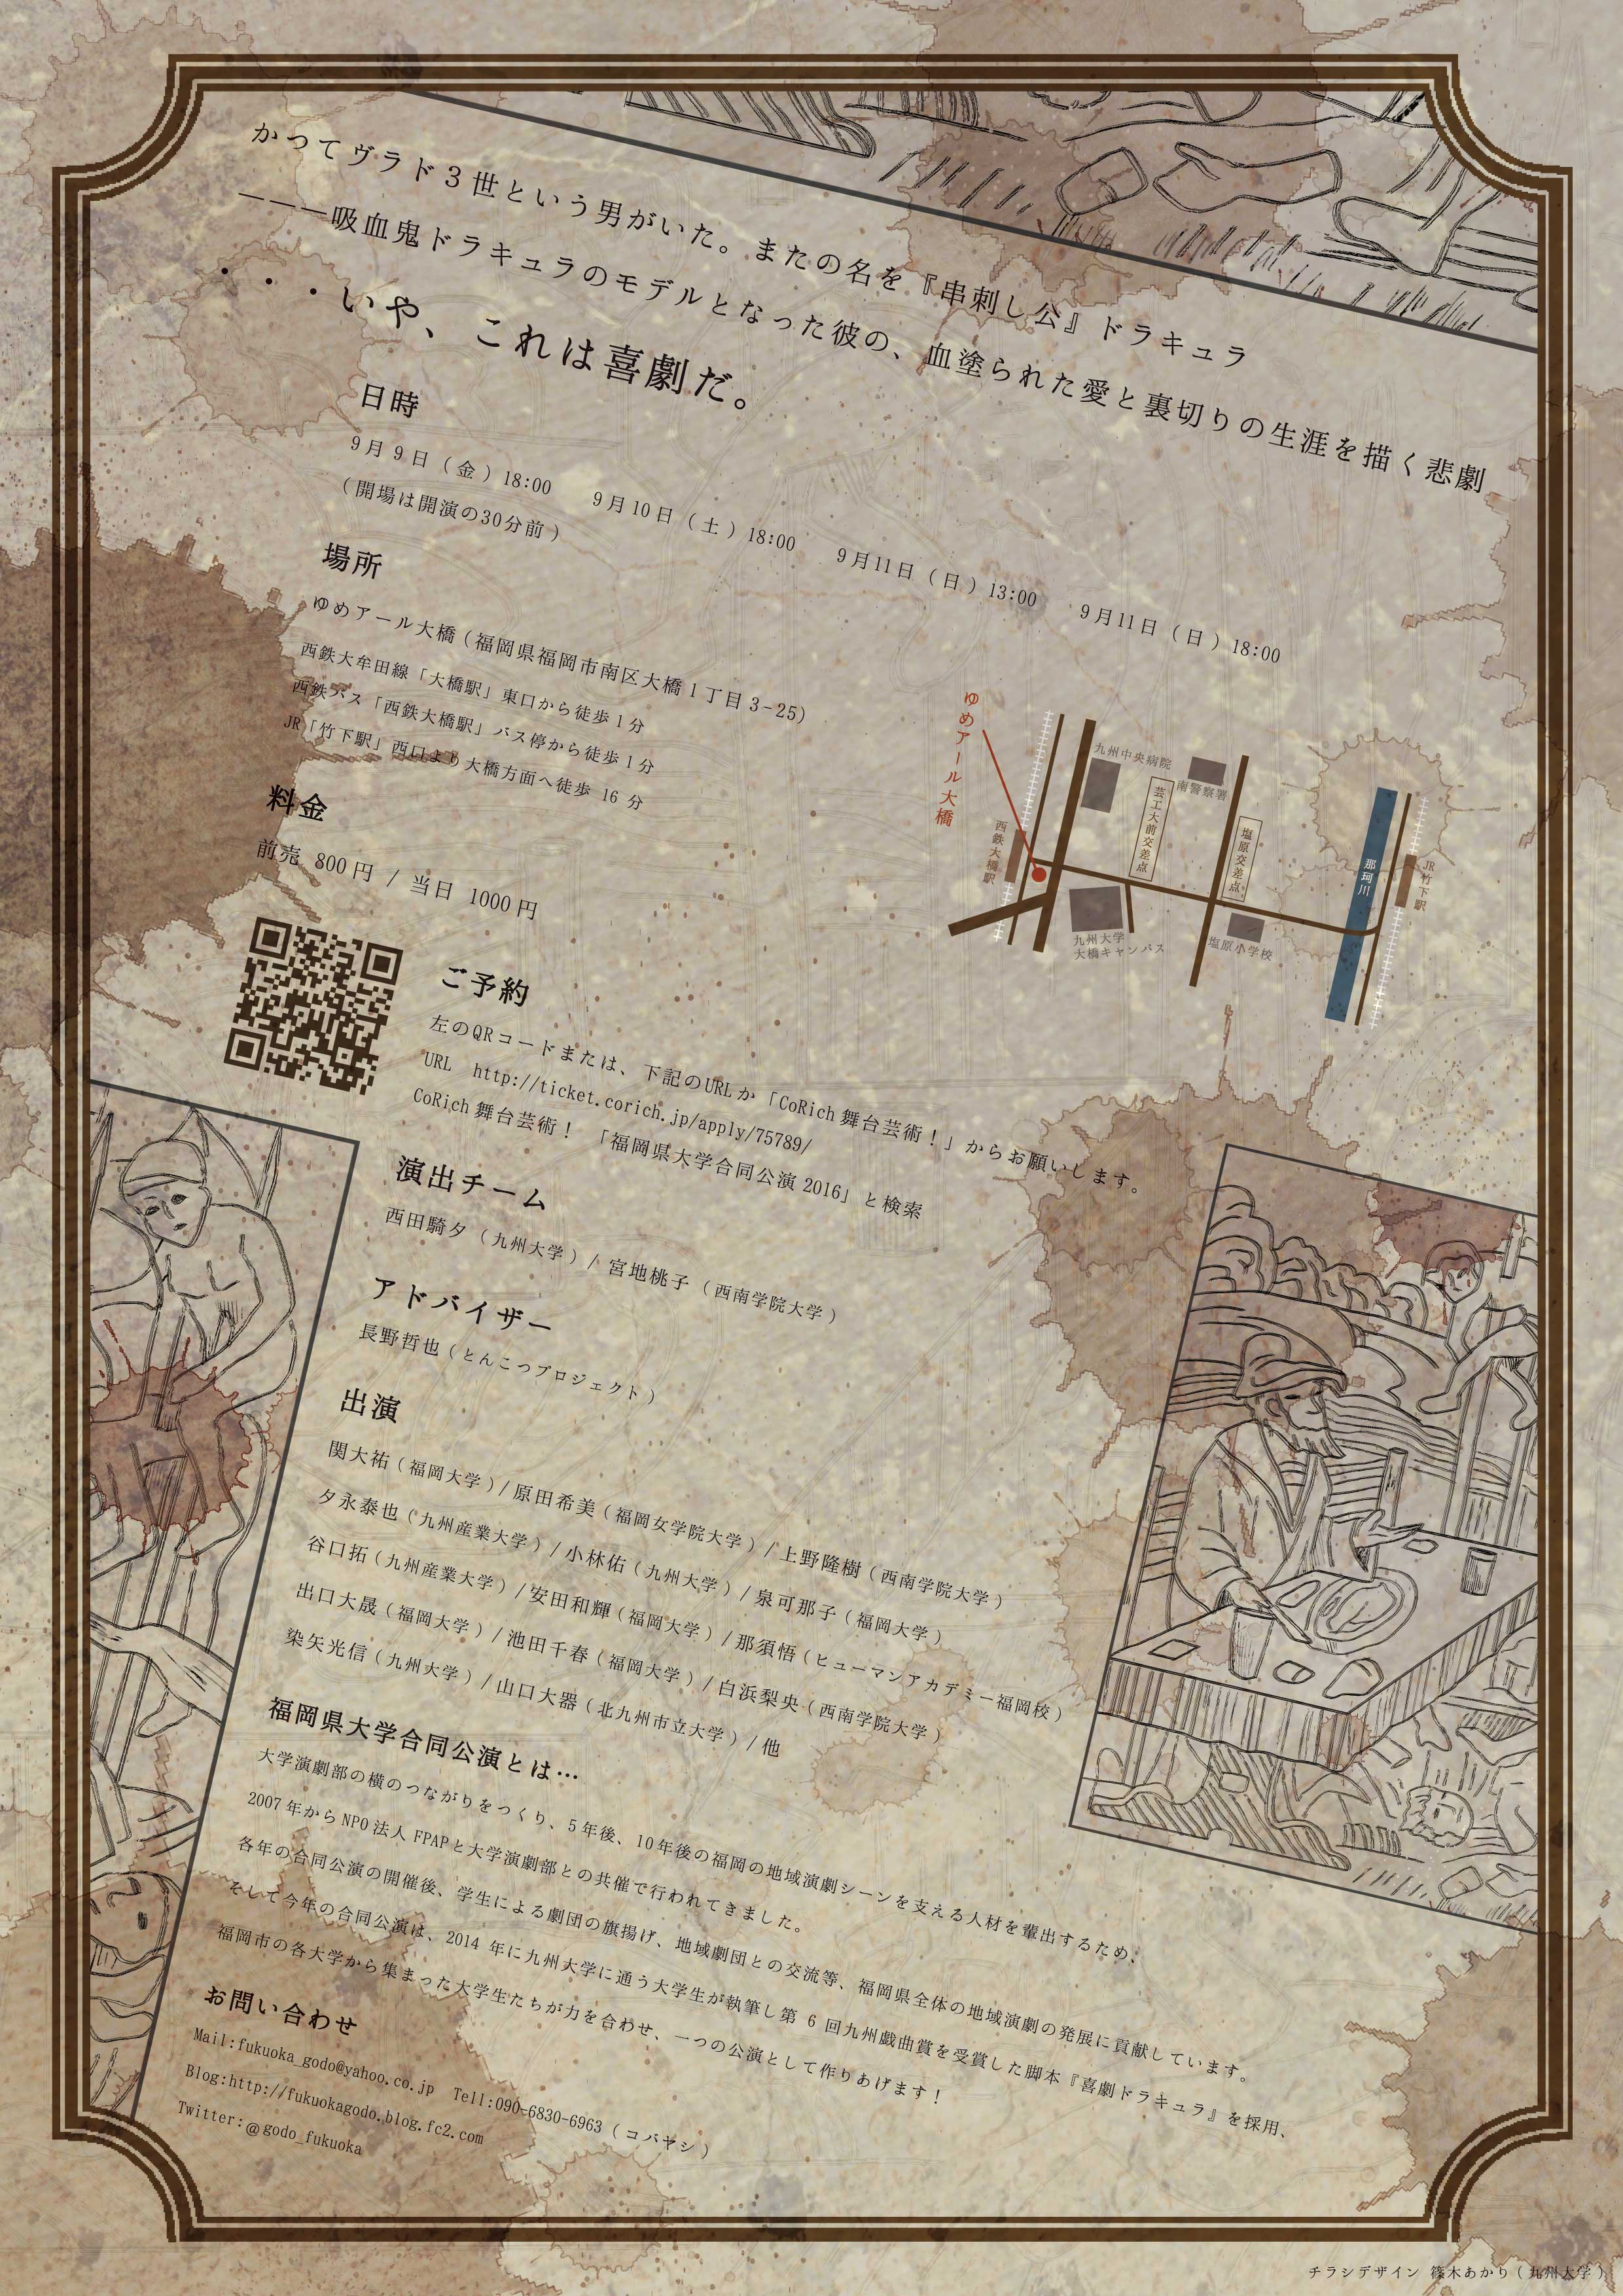 かつてヴラド3世という男がいた。またの名を『串刺し公』ドラキュラ
———吸血鬼ドラキュラのモデルとなった彼の、血塗られた愛と裏切りの生涯を描く悲劇
・・・いや、これは喜劇だ。
日時
9月9日(金)18:00 9月10日(土)18:00 9月11日(日)13:00 9月11日(日)18:00
(開場は開演の30分前)
場所
ゆめアール大橋(福岡県福岡市南区大橋1丁目3-25)
西鉄大牟田線「大橋駅」東口から徒歩1分
西鉄バス「西鉄大橋駅」バス停から徒歩1分
JR「竹下駅」西口より大橋方面へ徒歩 16 分
ゆめアール大橋
西鉄大橋駅
九州中央病院
南警察署
芸工大前交差点
塩原交差点
那珂川
JR竹下駅
九州大学
大橋キャンパス
塩原小学校
料金
前売 800円 / 当日 1000円
ご予約
左のQRコードまたは、下記のURLか「CoRich舞台芸術!」からお願いします。
URL http://ticket.corich.jp/apply/75789/
CoRich舞台芸術! 「福岡県大学合同公演2016」と検索
演出チーム
西田騎夕(九州大学)/ 宮地桃子(西南学院大学)
アドバイザー
長野哲也(とんこつプロジェクト)
出演
関大祐(福岡大学)/原田希美(福岡女学院大学)/上野隆樹(西南学院大学)
夕永泰也(九州産業大学)/小林佑(九州大学)/泉可那子(福岡大学)
谷口拓(九州産業大学)/安田和輝(福岡大学)/那須悟(ヒューマンアカデミー福岡校)
出口大晟(福岡大学)/池田千春(福岡大学)/白浜梨央(西南学院大学)
染矢光信(九州大学)/山口大器(北九州市立大学)/他
福岡県大学合同公演とは…
大学演劇部の横のつながりをつくり、5年後、10年後の福岡の地域演劇シーンを支える人材を輩出するため、
2007年からNPO法人FPAPと大学演劇部との共催で行われてきました。
各年の合同公演の開催後、学生による劇団の旗揚げ、地域劇団との交流等、福岡県全体の地域演劇の発展に貢献しています。
そして今年の合同公演は、2014 年に九州大学に通う大学生が執筆し第 6 回九州戯曲賞を受賞した脚本『喜劇ドラキュラ』を採用、
福岡市の各大学から集まった大学生たちが力を合わせ、一つの公演として作りあげます!
お問い合わせ
Mail:fukuoka_godo@yahoo.co.jp Tell:090-6830-6963(コバヤシ)
Blog:http://fukuokagodo.blog.fc2.com
Twitter:@godo_fukuoka
チラシデザイン 篠木あかり(九州大学)